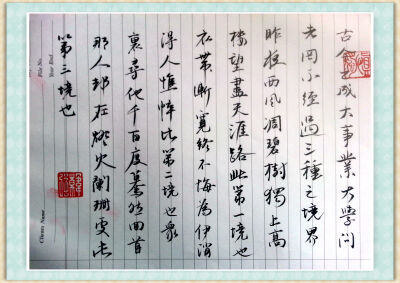 古今之成大事業大學问
者罔不经過三種之境界
昨夜西風凋碧樹獨上高
楼望盡天涯路此第一境也
衣带漸寬终不悔為伊消
得人憔悴此第二境也衆
裏尋他千百度驀然回首
那人却在燈火闌珊處此
第三境也
File No.
Year End
Clients Name